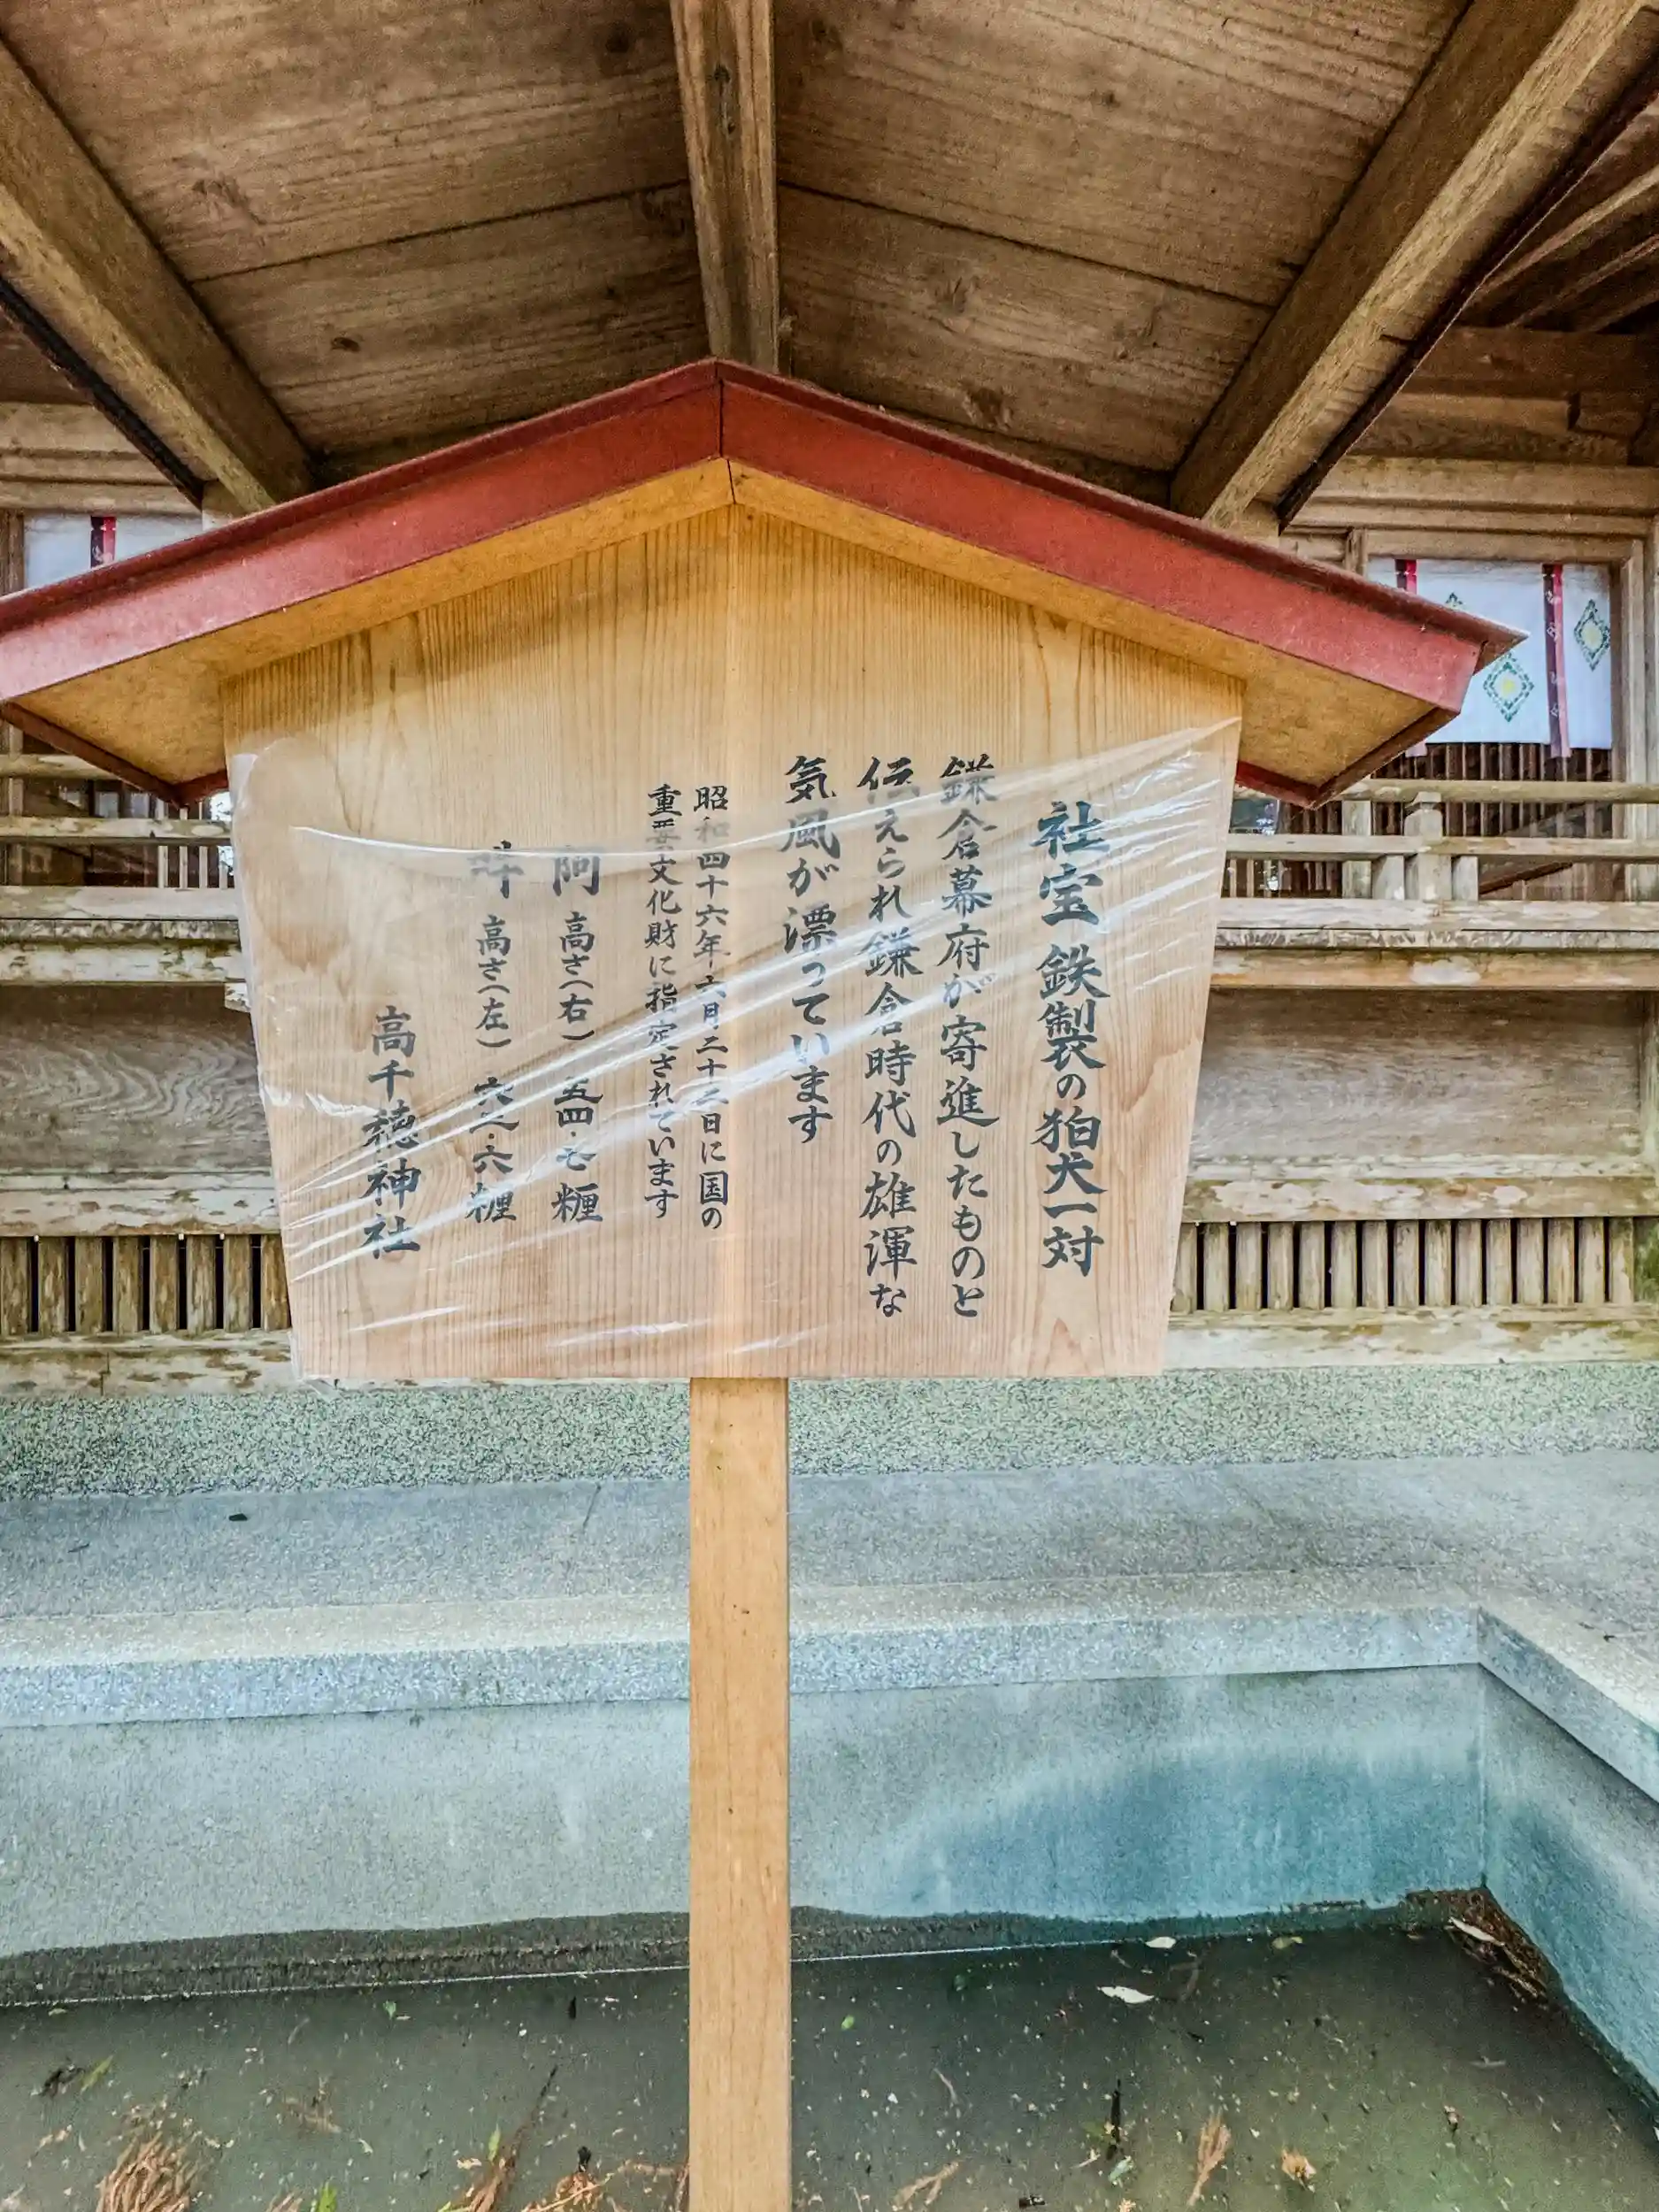 社宝 鉄製の狛犬一対
鎌倉幕府が寄進したものと
伝えられ鎌倉時代の雄渾な
気風が漂っています
昭和四十六年六月二十二日に国の
重要文化財に指定されています
阿 高さ(右) 五四・七糎
吽 高さ(左) 六・六糎
高千穂神社